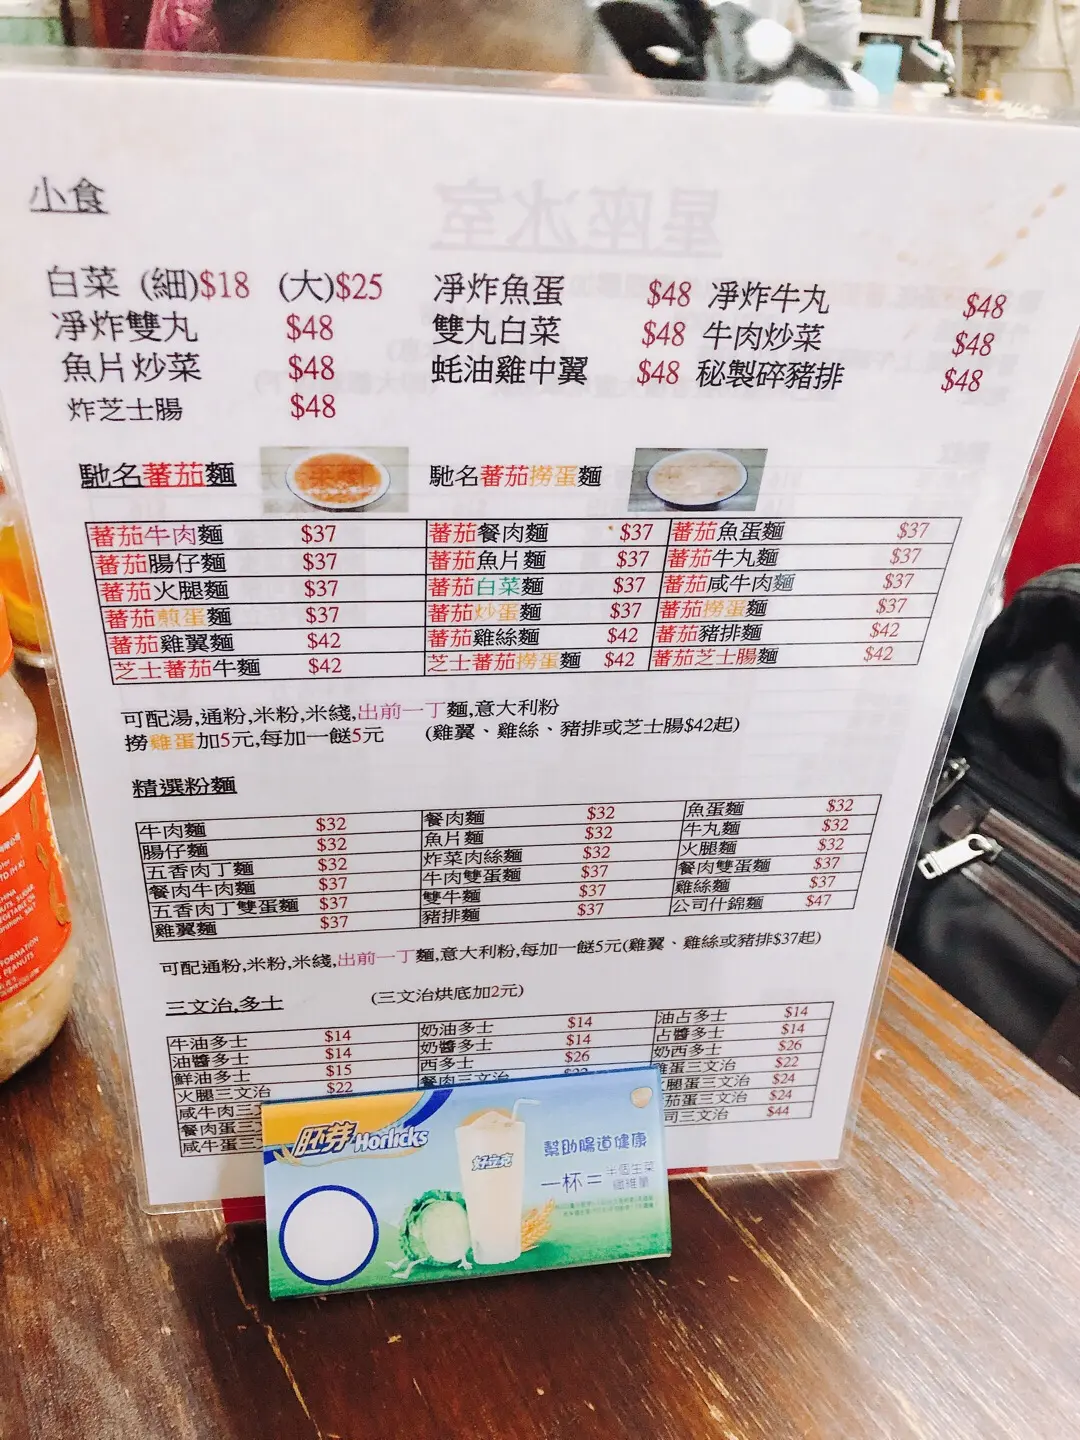 小食
白菜 (細)$18 (大)$25 凈炸魚蛋 $48 凈炸牛丸 $48
凈炸雙丸 $48 雙丸白菜 $48 牛肉炒菜 $48
魚片炒菜 $48 蚝油雞中翼 $48 秘製碎豬排 $48
炸芝士腸 $48
馳名蕃茄麵 馳名蕃茄撈蛋麵
蕃茄牛肉麵 $37 蕃茄餐肉麵 $37 蕃茄魚蛋麵 $37
蕃茄腸仔麵 $37 蕃茄魚片麵 $37 蕃茄牛丸麵 $37
蕃茄火腿麵 $37 蕃茄白菜麵 $37 蕃茄咸牛肉麵 $37
蕃茄煎蛋麵 $37 蕃茄炒蛋麵 $37 蕃茄撈蛋麵 $37
蕃茄雞翼麵 $42 蕃茄雞絲麵 $42 蕃茄豬排麵 $42
芝士蕃茄牛麵 $42 芝士蕃茄撈蛋麵 $42 蕃茄芝士腸麵 $42
可配湯,通粉,米粉,米綫,出前一丁麵,意大利粉
撈雞蛋加5元,每加一餸5元 (雞翼、雞絲、豬排或芝士腸$42起)
精選粉麵
牛肉麵 $32 餐肉麵 $32 魚蛋麵 $32
腸仔麵 $32 魚片麵 $32 牛丸麵 $32
五香肉丁麵 $32 炸菜肉絲麵 $32 火腿麵 $32
餐肉牛肉麵 $37 牛肉雙蛋麵 $37 餐肉雙蛋麵 $37
五香肉丁雙蛋麵 $37 雙牛麵 $37 雞絲麵 $37
雞翼麵 $37 豬排麵 $37 公司什錦麵 $47
可配通粉,米粉,米綫,出前一丁麵,意大利粉,每加一餸5元(雞翼、雞絲或豬排$37起)
三文治,多士 (三文治烘底加2元)
牛油多士 $14 奶油多士 $14 油占多士 $14
油醬多士 $14 奶醬多士 $14 占醬多士 $14
鮮油多士 $15 西多士 $26 奶西多士 $26
火腿三文治 $22 餐肉三文治 雞蛋三文治 $22
咸牛肉三 腿蛋三文治 $24
餐肉蛋三 茄蛋三文治 $24
咸牛蛋三 司三文治 $44
胚芽 Horlicks
好立克
幫助腸道健康
一杯= 半個生菜
纖維量